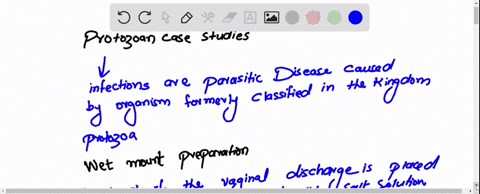 Protozoan case studies
infections are parasitic Disease caused
by organism formerly classified in the kingdom
protozoa
Wet mount preparation
the vaginal discharge is placed
solution